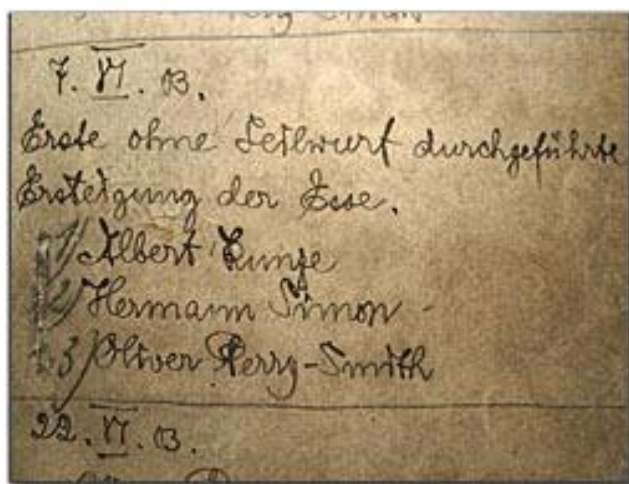 7. VI. 03.
Erste ohne Seilwurf durchgeführte
Ersteigung der Esse.
1) Albert Kunze
2) Hermann Simon
3) Oliver Perry-Smith
22. VI. 03.